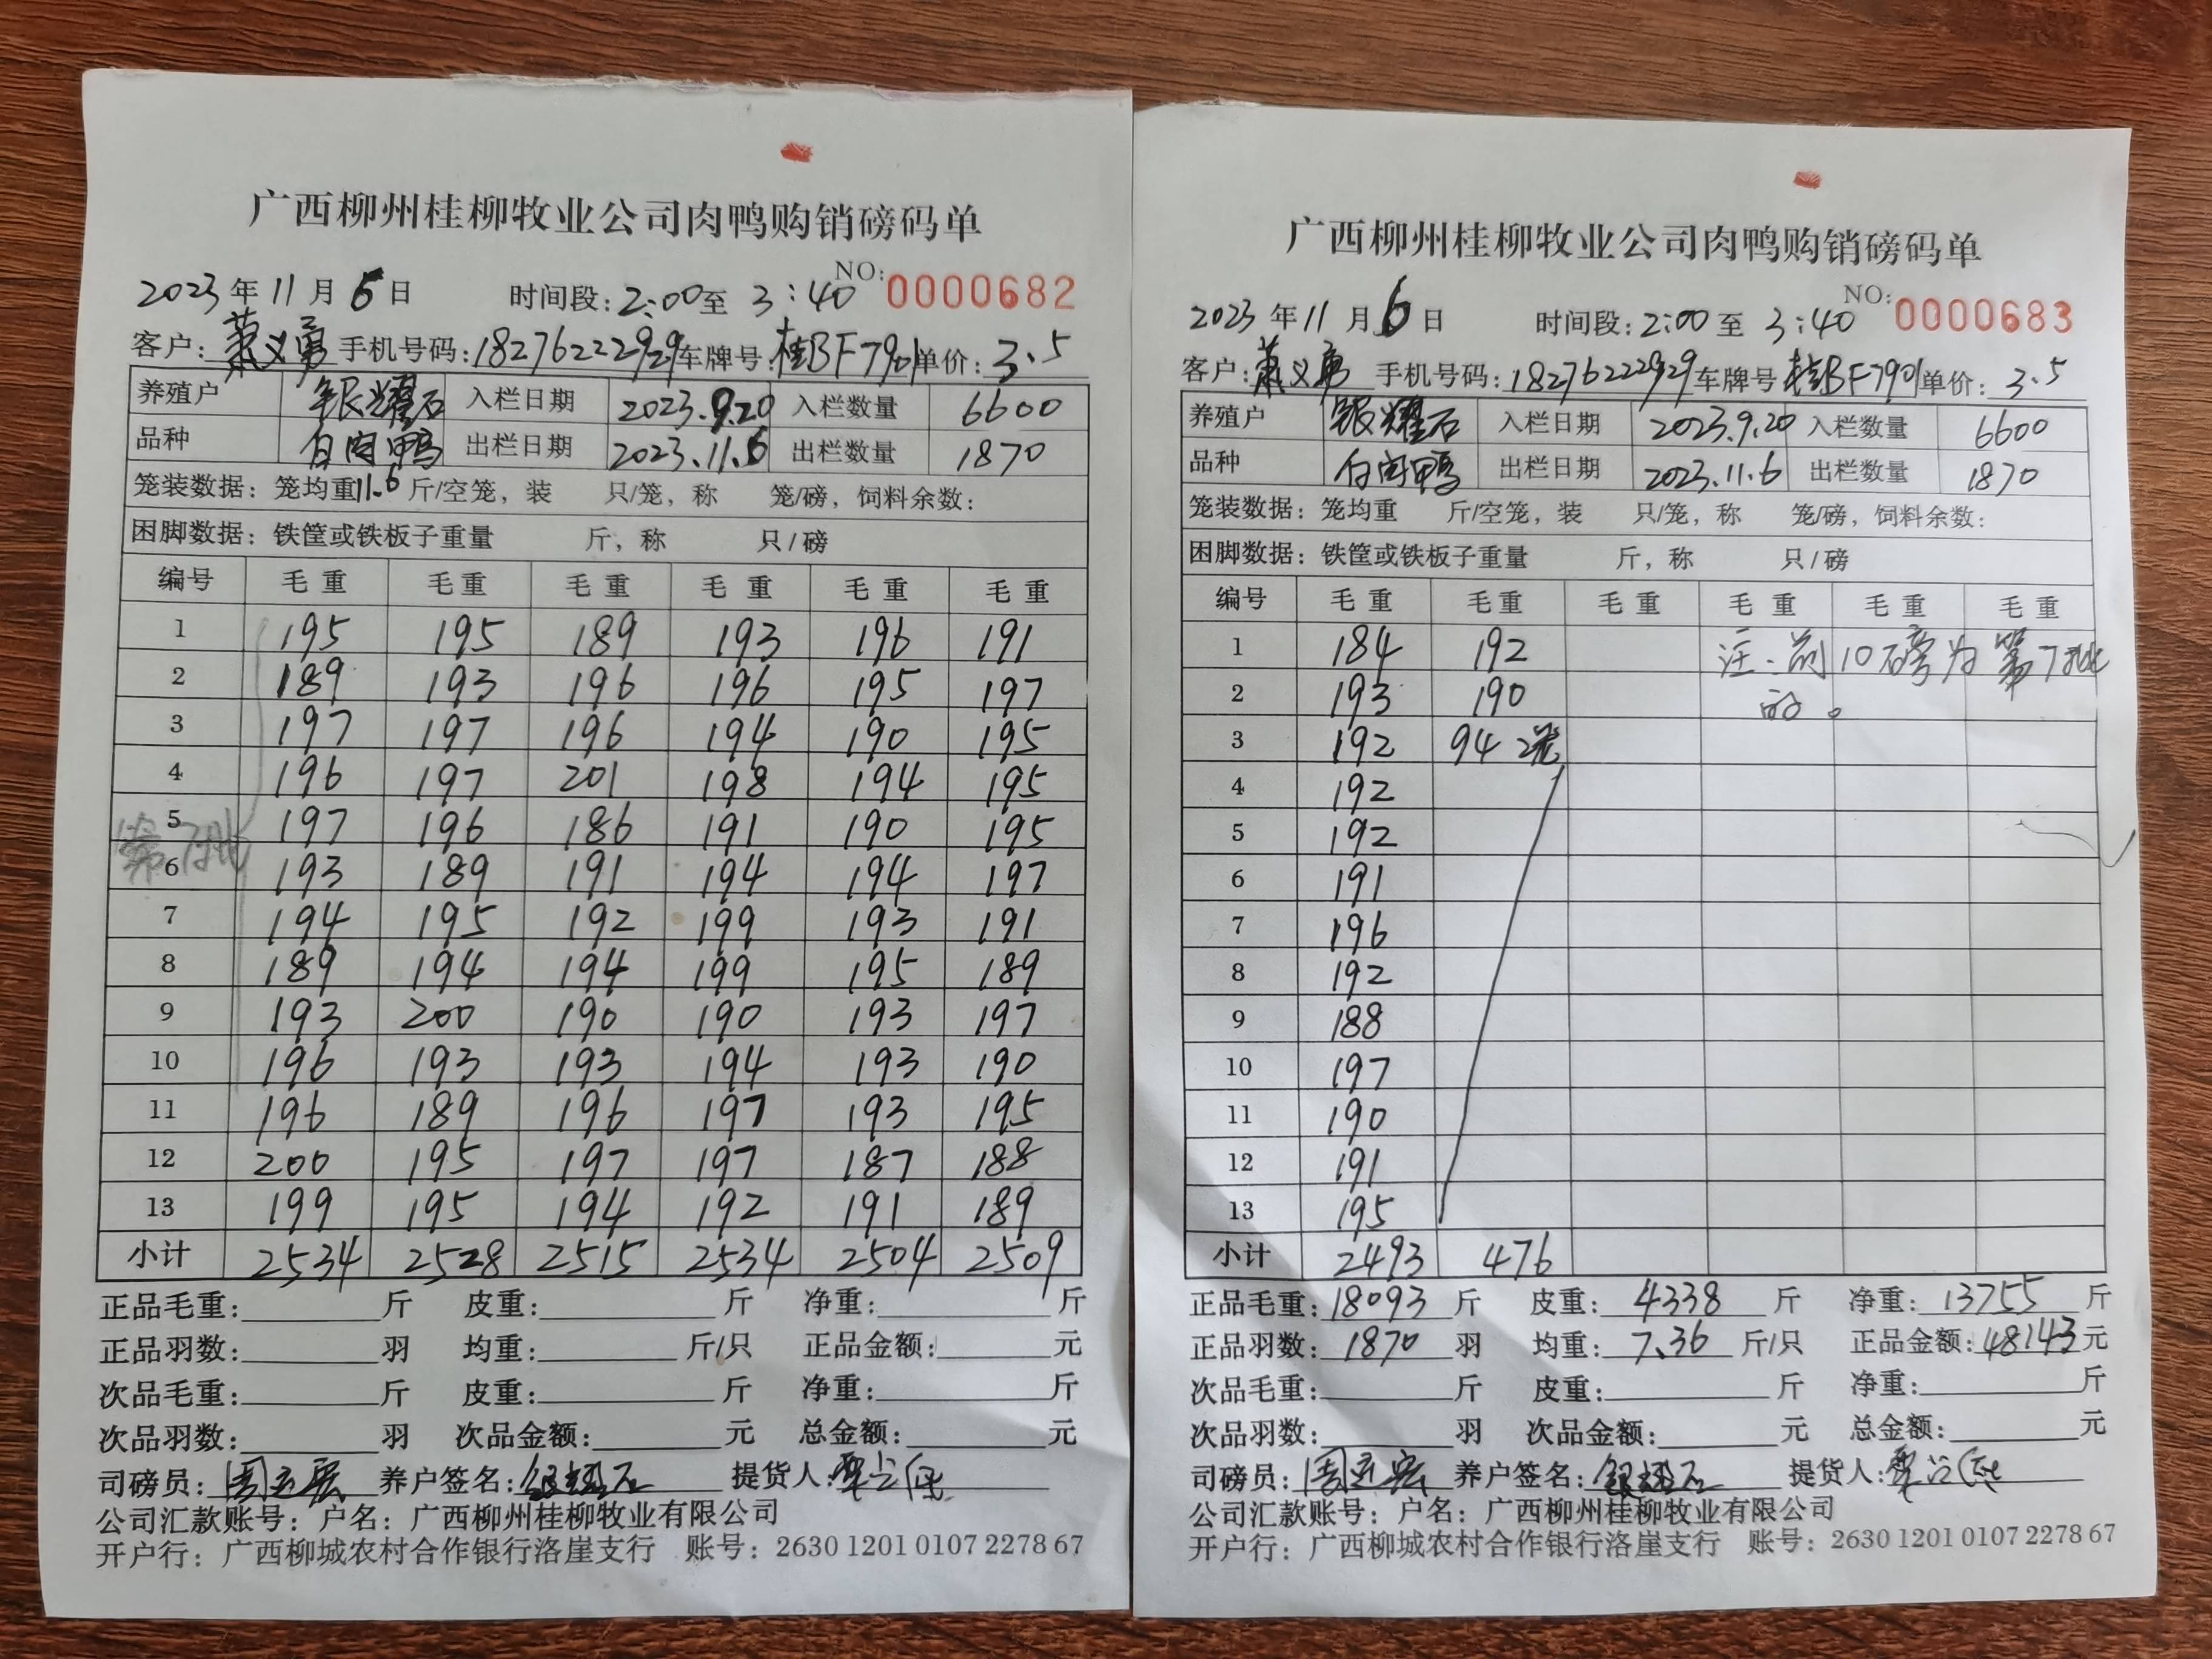 广西柳州桂柳牧业公司肉鸭购销磅码单
NO: 0000682
2023年11月6日 时间段: 2:00至 3:40
客户: 萧义勇 手机号码: 18276222929 车牌号: 桂BF7901 单价: 3.5
养殖户 银耀石 入栏日期 2023.9.20 入栏数量 6600
品种 白肉鸭 出栏日期 2023.11.6 出栏数量 1870
笼装数据: 笼均重11.6斤/空笼, 装 只/笼, 称 笼/磅, 饲料余数:
困脚数据: 铁筐或铁板子重量 斤, 称 只/磅
编号 毛重 毛重 毛重 毛重 毛重 毛重
1 195 195 189 193 196 191
2 189 193 196 196 195 197
3 197 197 196 194 190 195
4 196 197 201 198 194 195
5 197 196 186 191 190 195
第7批
6 193 189 191 194 194 197
7 194 195 192 199 193 191
8 189 194 194 199 195 189
9 193 200 190 190 193 197
10 196 193 193 194 193 190
11 196 189 196 197 193 195
12 200 195 197 197 187 188
13 199 195 194 192 191 189
小计 2534 2528 2515 2534 2504 2509
正品毛重: 斤 皮重: 斤 净重: 斤
正品羽数: 羽 均重: 斤/只 正品金额: 元
次品毛重: 斤 皮重: 斤 净重: 斤
次品羽数: 羽 次品金额: 元 总金额: 元
司磅员: 养户签名: 银耀石 提货人:
公司汇款账号: 户名: 广西柳州桂柳牧业有限公司
开户行: 广西柳城农村合作银行洛崖支行 账号: 2630 1201 0107 2278 67
广西柳州桂柳牧业公司肉鸭购销磅码单
NO: 0000683
2023年11月6日 时间段: 2:00至 3:40
客户: 萧义勇 手机号码: 18276222929 车牌号 桂BF7901 单价: 3.5
养殖户 银耀石 入栏日期 2023.9.20 入栏数量 6600
品种 白肉鸭 出栏日期 2023.11.6 出栏数量 1870
笼装数据: 笼均重 斤/空笼, 装 只/笼, 称 笼/磅, 饲料余数:
困脚数据: 铁筐或铁板子重量 斤, 称 只/磅
编号 毛重 毛重 毛重 毛重 毛重 毛重
1 184 192 注:前10磅为第7批
2 193 190 的。
3 192 94 2笼
4 192
5 192
6 191
7 196
8 192
9 188
10 197
11 190
12 191
13 195
小计 2493 476
正品毛重: 18093 斤 皮重: 4338 斤 净重: 13755 斤
正品羽数: 1870 羽 均重: 7.36 斤/只 正品金额: 48143元
次品毛重: 斤 皮重: 斤 净重: 斤
次品羽数: 羽 次品金额: 元 总金额: 元
司磅员: 养户签名: 银耀石 提货人:
公司汇款账号: 户名: 广西柳州桂柳牧业有限公司
开户行: 广西柳城农村合作银行洛崖支行 账号: 2630 1201 0107 2278 67